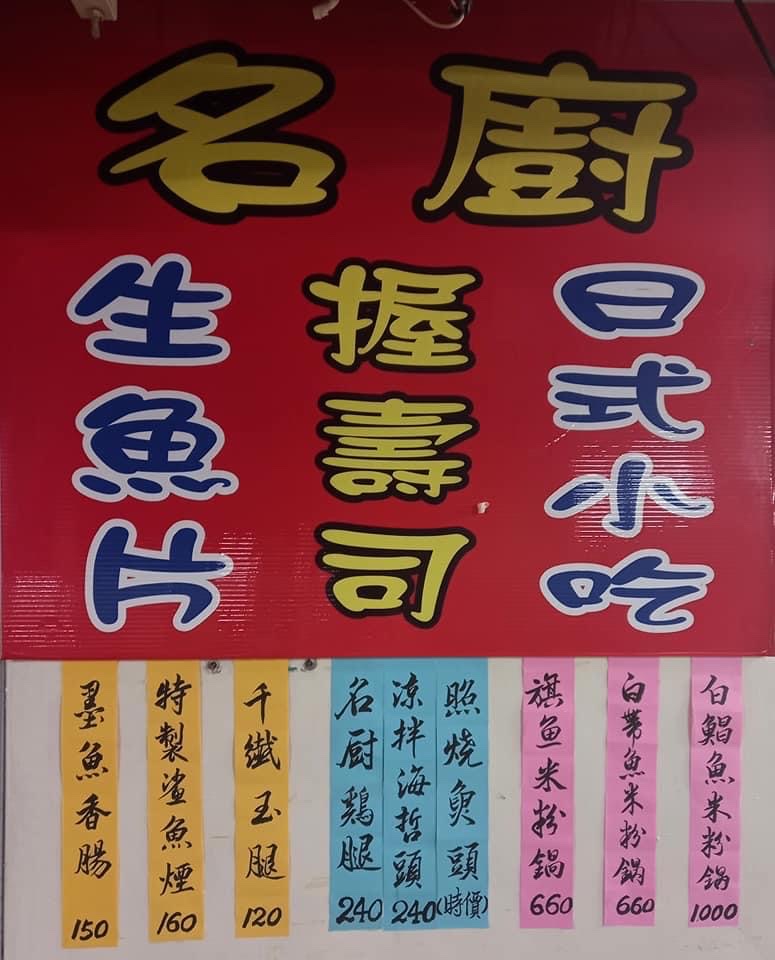 名廚
日式小吃
握壽司
生魚片
白鯧魚米粉鍋 1000
白帶魚米粉鍋 660
旗鱼米粉鍋 660
照烧魚頭(時價)
涼拌海哲頭 240
名厨鷄腿 240
千纖玉腿 120
特製鯊魚煙 160
墨魚香腸 150